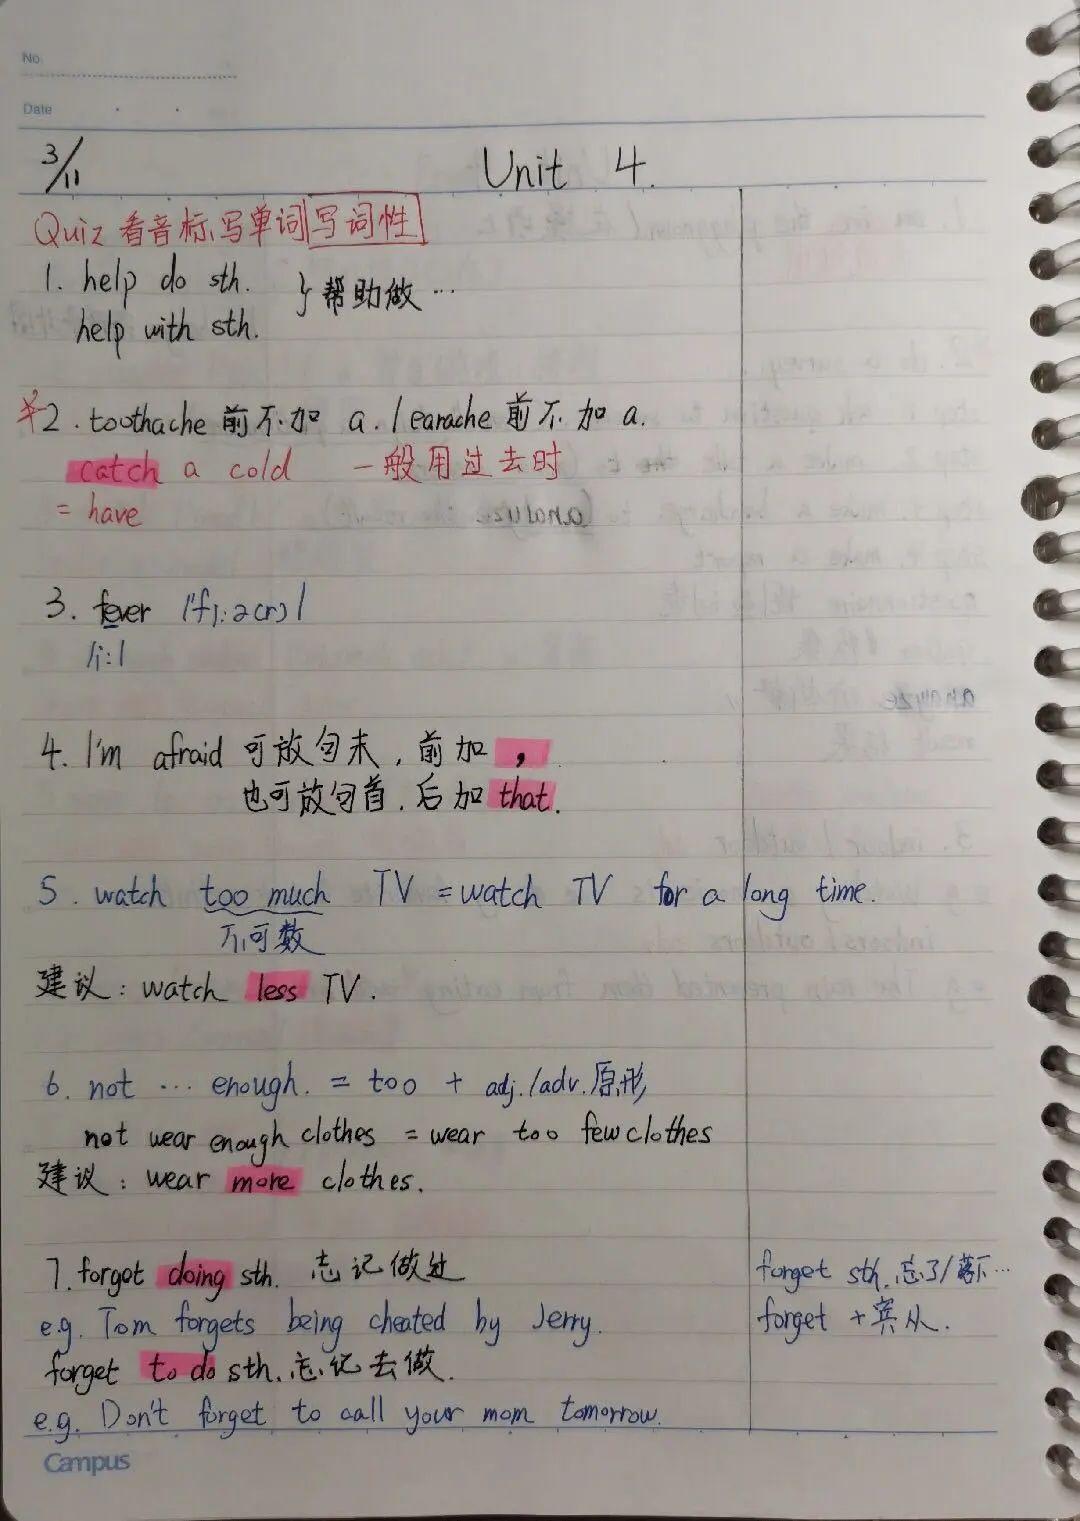 No.
Date
3/11 Unit 4.
Quiz 看音标写单词写词性
1. help do sth.
help with sth.
} 帮助做 …
*2. toothache 前不加 a. / earache 前不加 a.
catch a cold 一般用过去时
= have
3. fever /'fi:ə(r)/
/i:/
4. I'm afraid 可放句末, 前加 ,
也可放句首, 后加 that.
5. watch too much TV = watch TV for a long time.
不可数
建议: watch less TV.
6. not … enough. = too + adj./adv. 原形
not wear enough clothes = wear too few clothes
建议: wear more clothes.
7. forget doing sth. 忘记做过
e.g. Tom forgets being cheated by Jerry.
forget to do sth. 忘记去做.
e.g. Don't forget to call your mom tomorrow.
forget sth. 忘了/落下…
forget + 宾从.
Campus